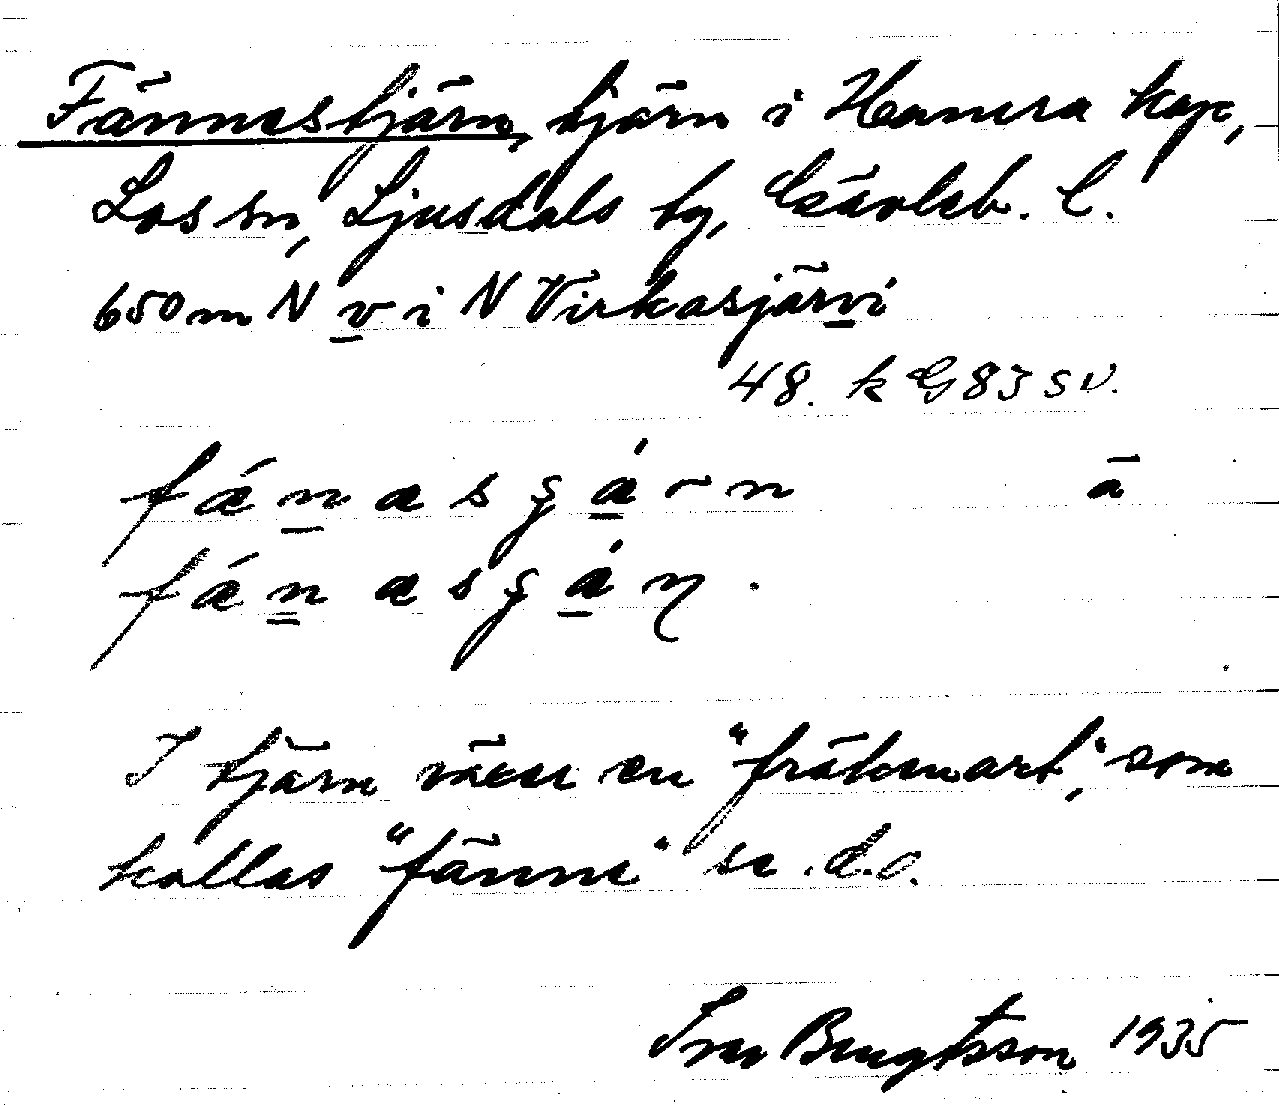 Fännestjärn, tjärn i Hamra kap,
Los sn, Ljusdals tg, Gävleb. l.
650 m N v i N Virkasjärvi
48. k G83 sv.
fǽnasgán
I tjärn växer en "fräkenart", som
kallas "fänne" se. d. o.
Bengtsson 1935